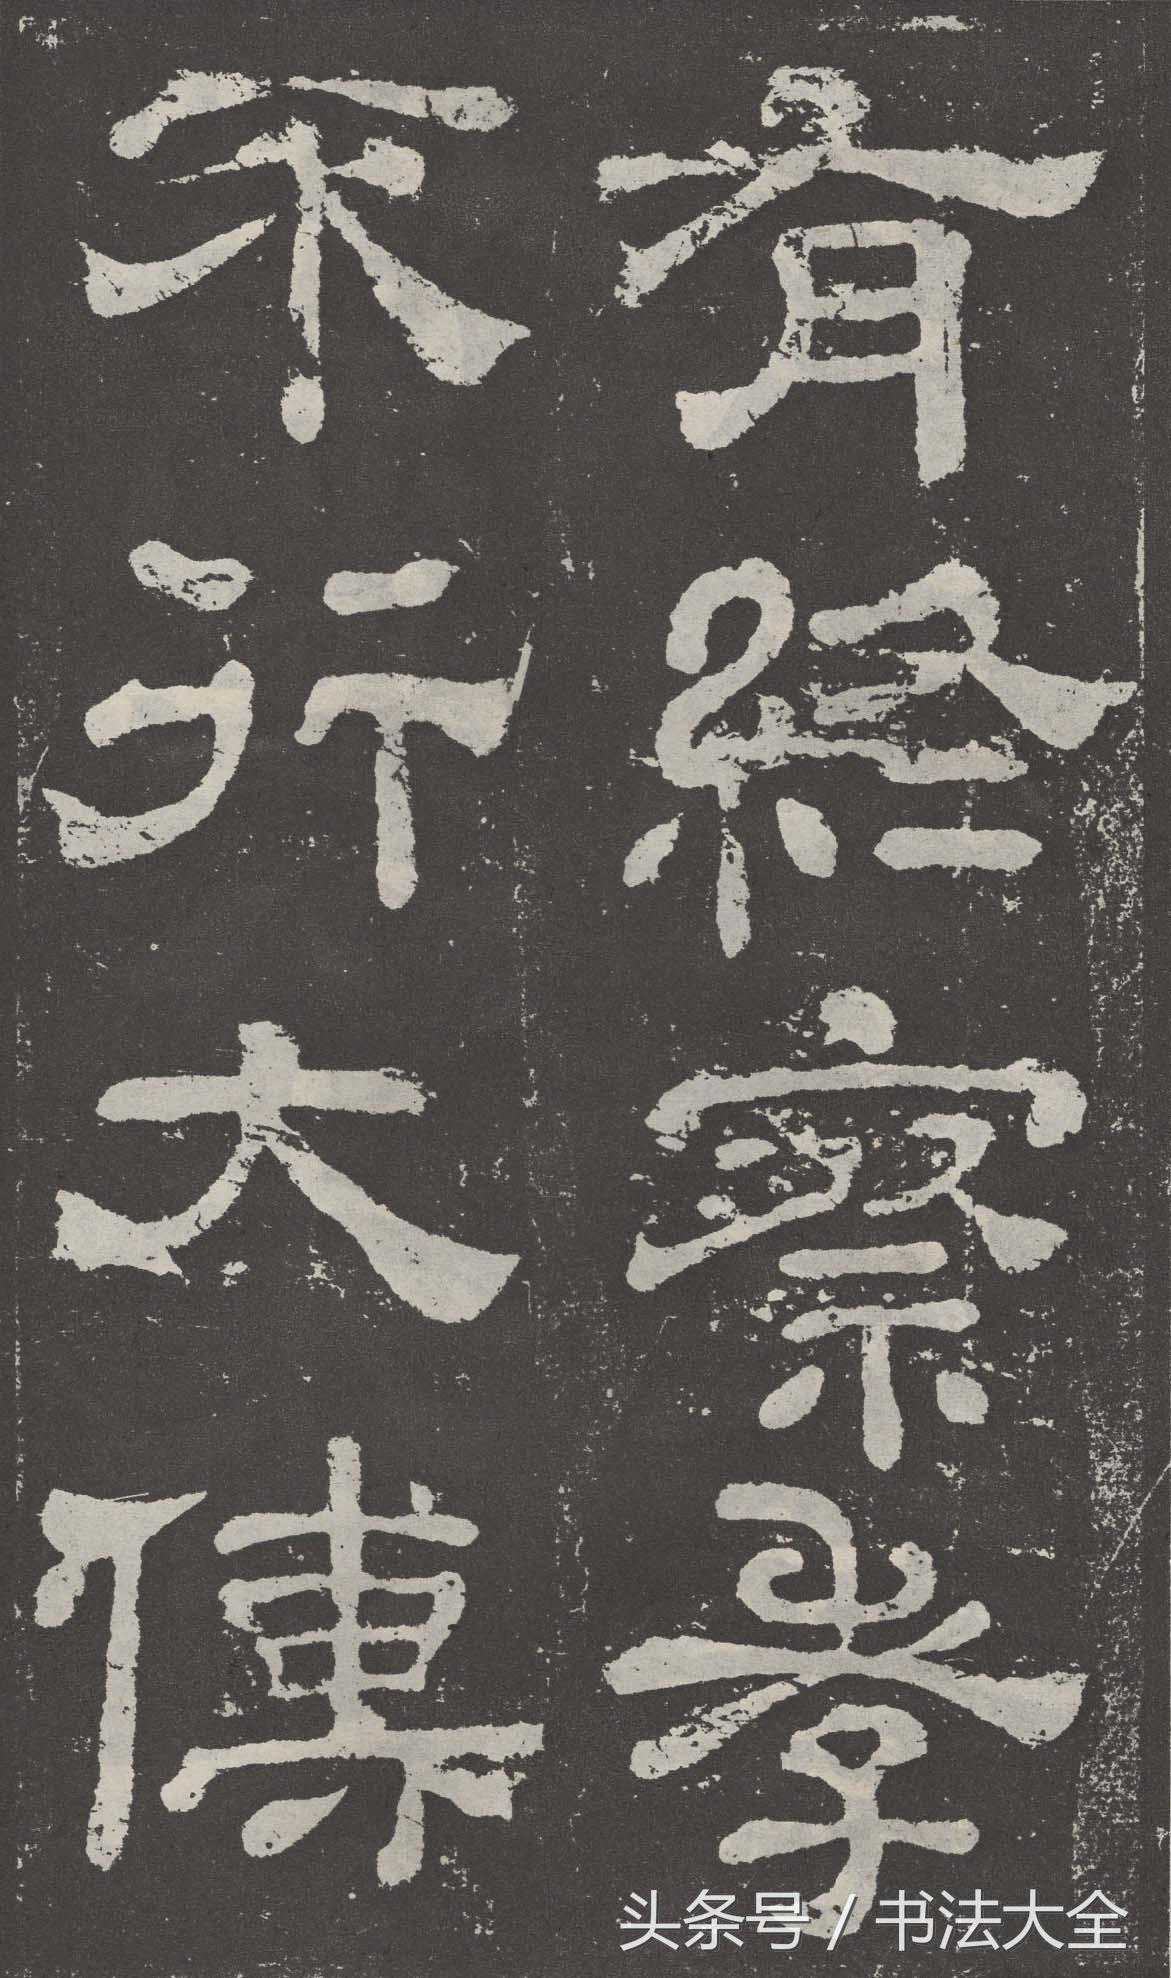 有終察孝
不行大傅
头条号 / 书法大全